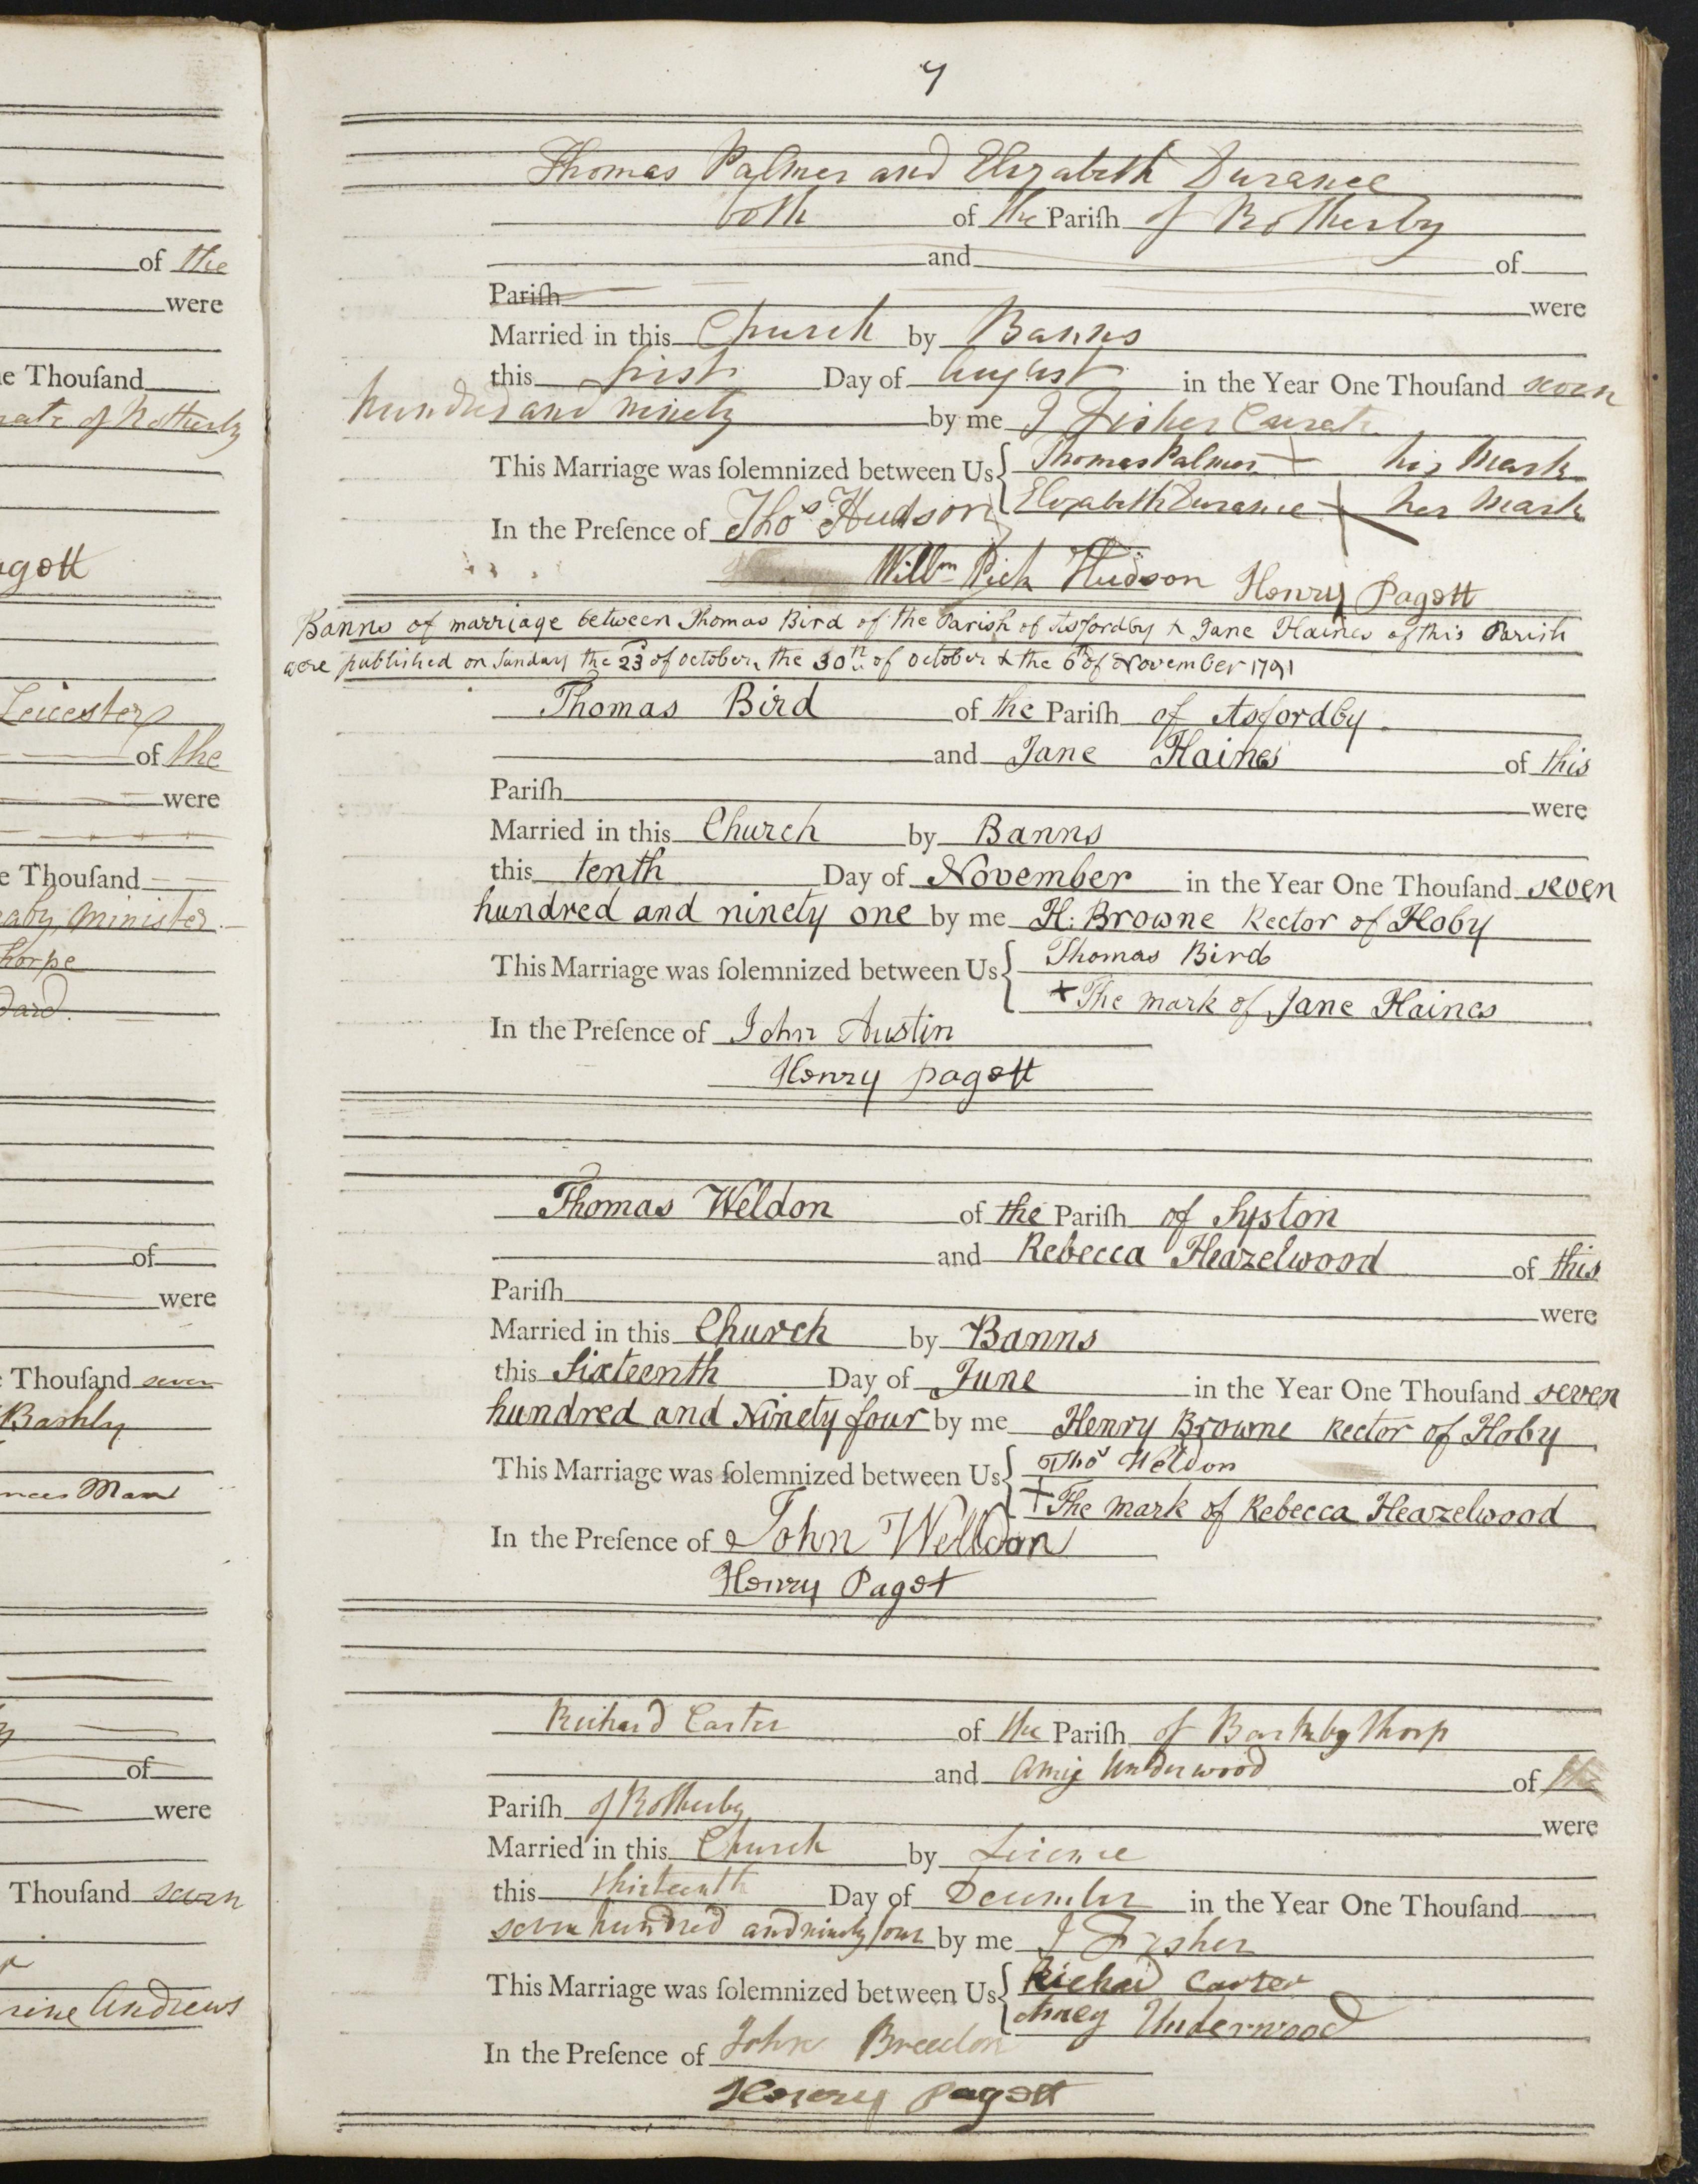 of the
were
e Thouſand
rate of Rotherby
agott
Leicester
of the
were
e Thouſand
aby minister
horpe
dard.
of
were
Thouſand seven
Barkby
nces Man
of
were
Thouſand seven
rine Andrews
7
Thomas Palmer and Elizabeth Durance
both of the Pariſh of Rotherby
and of
Pariſh were
Married in this Church by Banns
this first Day of August in the Year One Thouſand seven
hundred and ninety by me J Fisher Curate
This Marriage was ſolemnized between Us Thomas Palmer his Mark
Elizabeth Durance + her Mark
In the Preſence of Thos Hudson
Willm Pick Hudson Henry Pagott
Banns of marriage between Thomas Bird of the Parish of Asfordby & Jane Haines of this Parish
were published on Sunday the 23d of October, the 30th of October & the 6th of November 1791
Thomas Bird of the Pariſh of Asfordby
and Jane Haines of this
Pariſh were
Married in this Church by Banns
this tenth Day of November in the Year One Thouſand seven
hundred and ninety one by me H: Browne Rector of Hoby
This Marriage was ſolemnized between Us Thomas Bird
+ The mark of Jane Haines
In the Preſence of John Austin
Henry pagott
Thomas Weldon of the Pariſh of Syston
and Rebecca Heazelwood of this
Pariſh were
Married in this Church by Banns
this Sixteenth Day of June in the Year One Thouſand seven
hundred and Ninety four by me Henry Browne Rector of Hoby
This Marriage was ſolemnized between Us Thos Weldon
+ The mark of Rebecca Heazelwood
In the Preſence of John Welldon
Henry Pagot
Richard Carter of the Pariſh of Barkby thorp
and Amy Underwood of the
Pariſh of Rotherby were
Married in this Church by Licence
this thirteenth Day of December in the Year One Thouſand
seven hundred and ninety four by me J Fisher
This Marriage was ſolemnized between Us Richard Carter
Amey Underwood
In the Preſence of John Breedon
Henry pagott